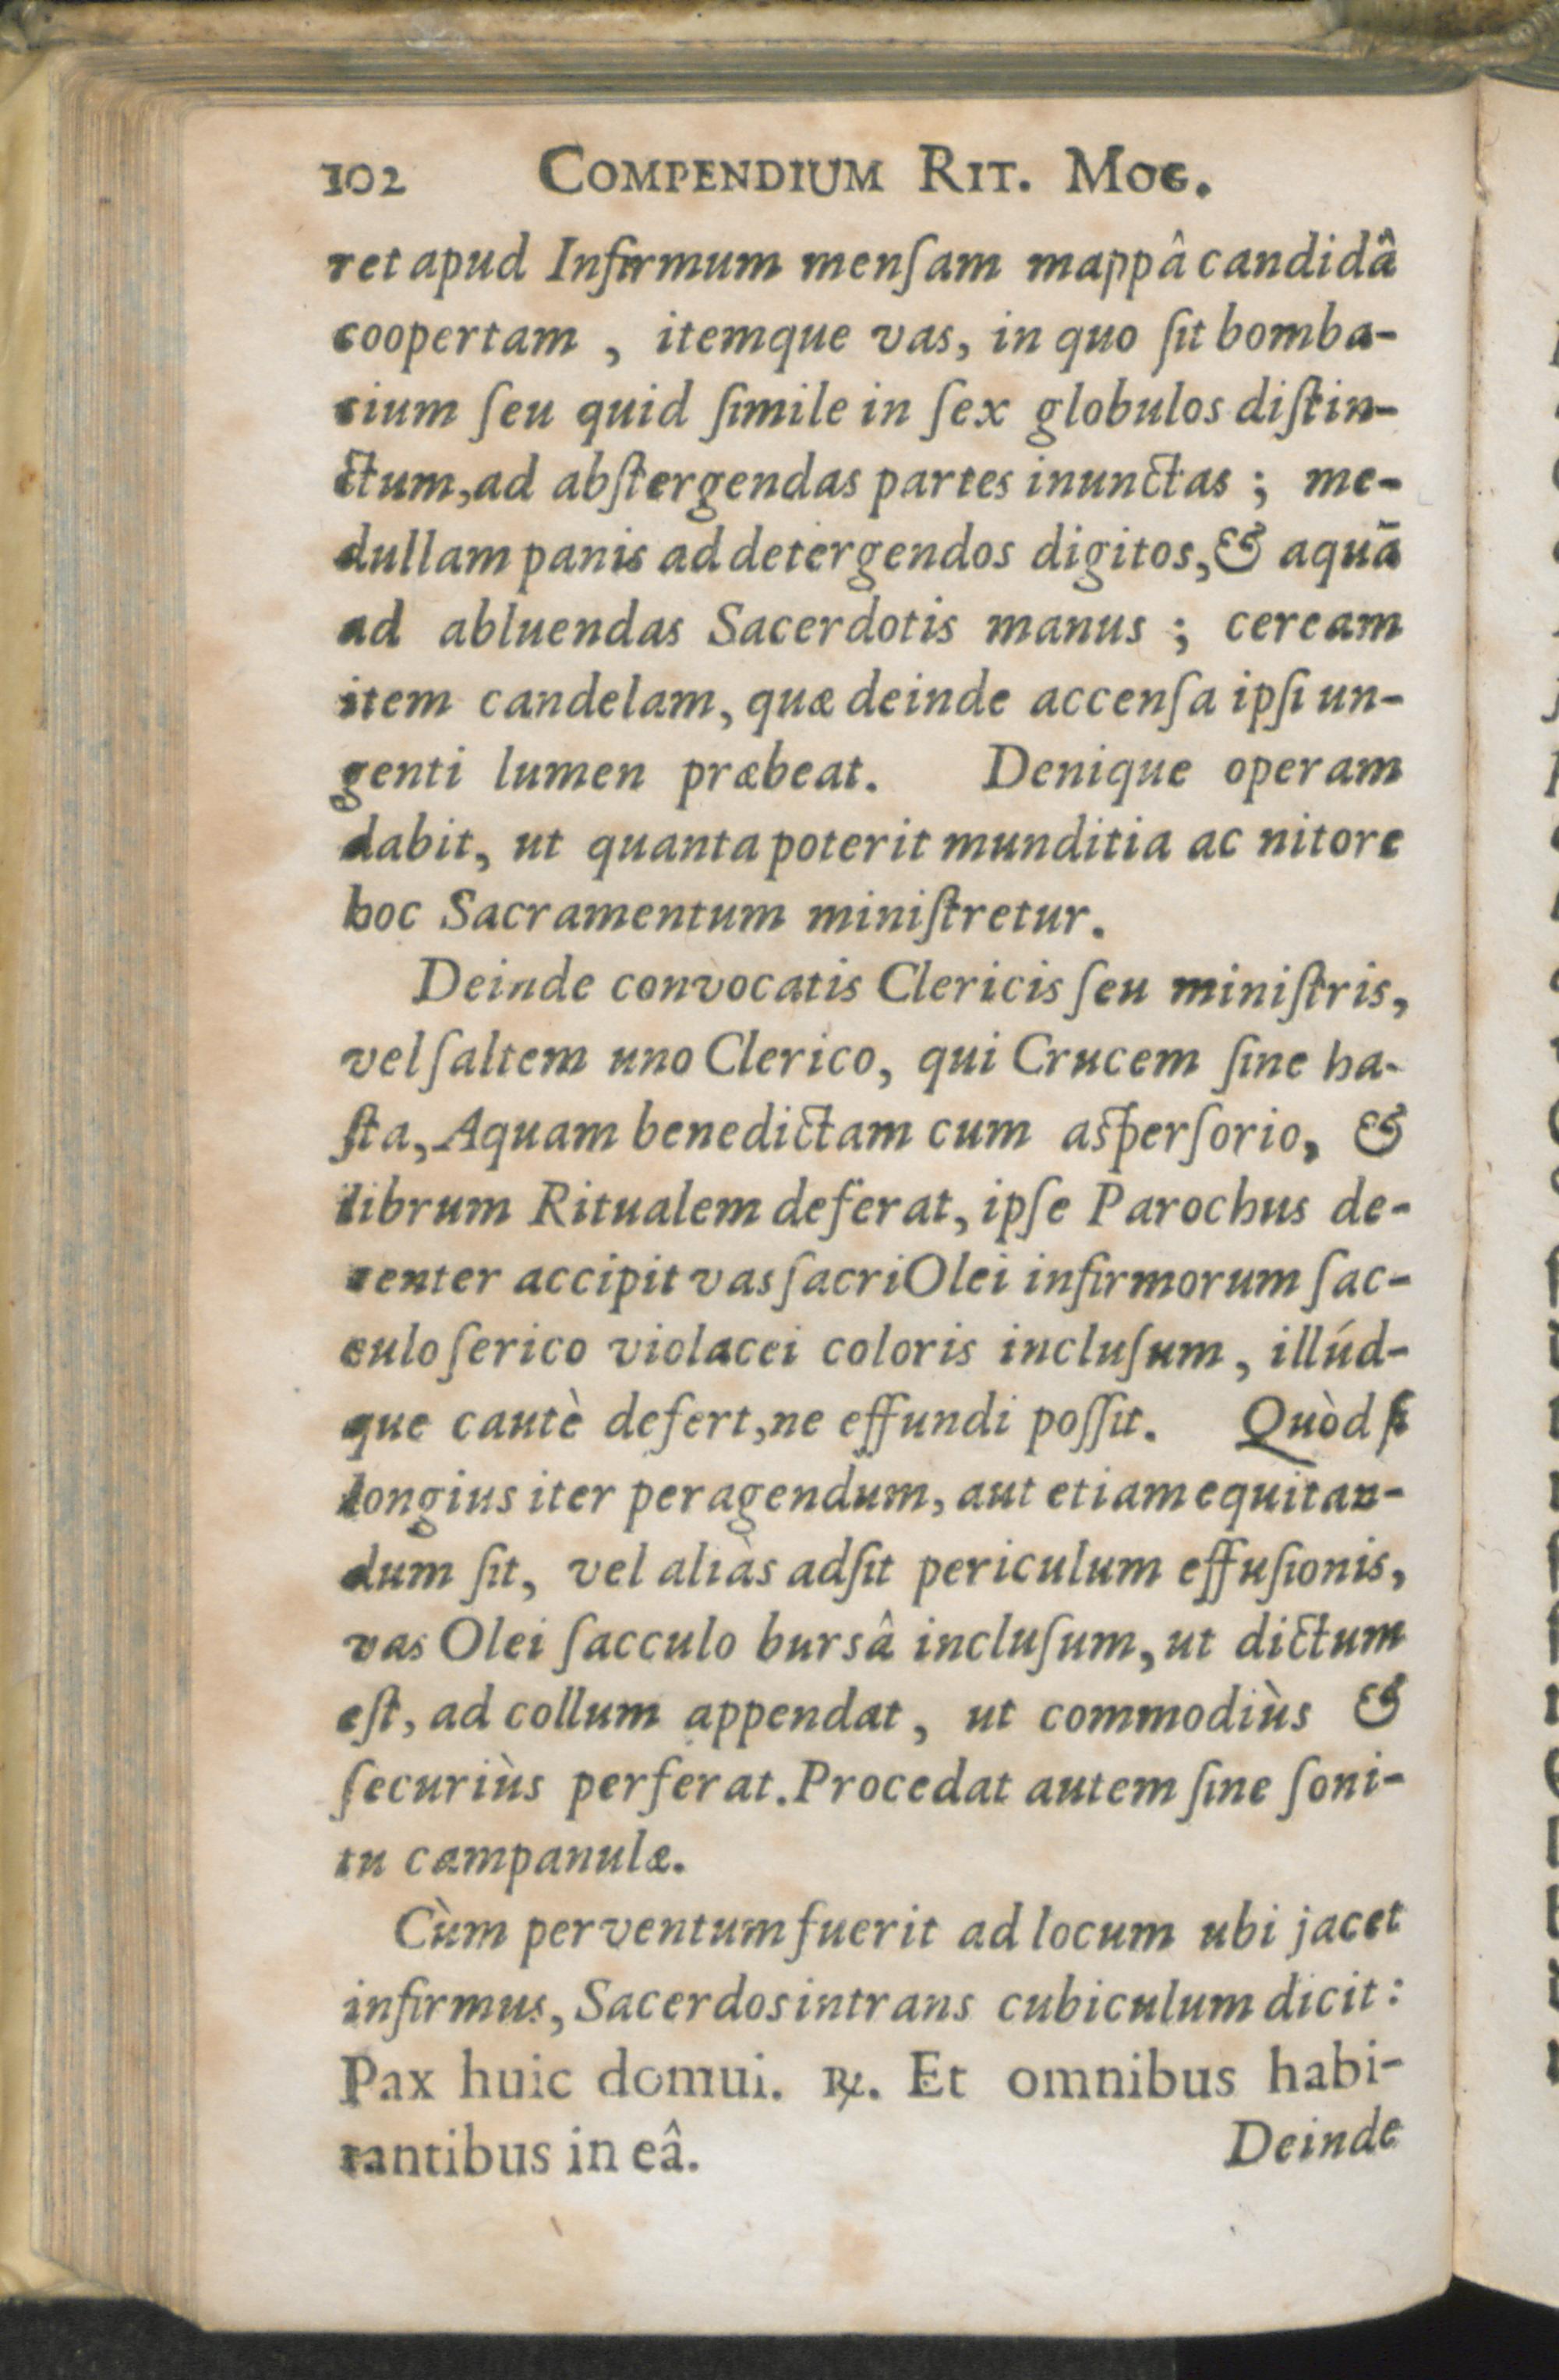 102 COMPENDIUM RIT. MOG.
ret apud Infirmum menſam mappâ candidâ
coopertam, itemque vas, in quo ſit bomba-
cium ſeu quid ſimile in ſex globulos diſtin-
ctum, ad abſtergendas partes inunctas; me-
dullam panis ad detergendos digitos, & aquā
ad abluendas Sacerdotis manus; ceream
item candelam, quæ deinde accenſa ipſi un-
genti lumen præbeat. Denique operam
dabit, ut quanta poterit munditia ac nitore
hoc Sacramentum miniſtretur.
Deinde convocatis Clericis ſeu miniſtris,
vel ſaltem uno Clerico, qui Crucem ſine ha-
ſta, Aquam benedictam cum aſperſorio, &
librum Ritualem deferat, ipſe Parochus de-
center accipit vas ſacri Olei infirmorum ſac-
culo ſerico violacei coloris incluſum, illúd-
que cautè defert, ne effundi poſſit. Quòd ſi
longius iter peragendum, aut etiam equitan-
dum ſit, vel aliàs adſit periculum effuſionis,
vas Olei ſacculo bursâ incluſum, ut dictum
eſt, ad collum appendat, ut commodiùs &
ſecuriùs perferat. Procedat autem ſine ſoni-
tu campanulæ.
Cùm perventum fuerit ad locum ubi jacet
infirmus, Sacerdos intrans cubiculum dicit:
Pax huic domui. ℟. Et omnibus habi-
tantibus in eâ. Deinde